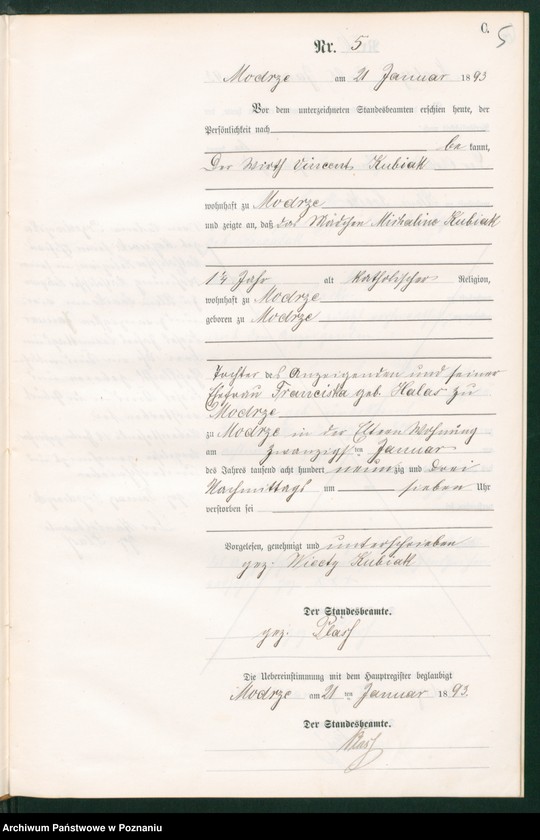 C.
5
Nr. 5
Modrze am 21 Januar 1893
Vor dem unterzeichneten Standesbeamten erschien heute, der
Persönlichkeit nach
be kannt,
Der Wirth Vincent Kubiak
wohnhaft zu Modrze
und zeigte an, daß das Mädchen Michaline Kubiak
14 Jahr alt katholischer Religion,
wohnhaft zu Modrze
geboren zu Modrze
Tochter des Anzeigenden und seiner
Ehefrau Franciska geb. Halas zu
Modrze
zu Modrze in der Eltern Wohnung
am zwanzigsten Januar
des Jahres tausend acht hundert neunzig und drei
Nachmittags um sieben Uhr
verstorben sei
Vorgelesen, genehmigt und unterschrieben
gez. Kubiak
Der Standesbeamte.
gez.
Die Uebereinstimmung mit dem Hauptregister beglaubigt
Modrze am 21 ten Januar 1893.
Der Standesbeamte.
Archiwum Państwowe w Poznaniu